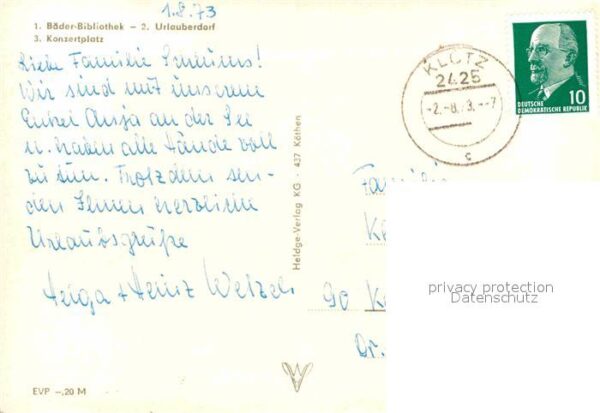 1.8.73
1. Bäder-Bibliothek – 2. Urlauberdorf
3. Konzertplatz
Liebe Familie
Wir sind mit unserem
Enkel Anja an der See
u. haben alle Hände voll
zu tun. Trotzdem sen-
den Ihnen herzliche
Urlaubsgrüße
Helga + Heinz Wetzel
Heldge-Verlag KG · 437 Köthen
KLÜTZ
2425
-2.-8.73.--7
c
10
DEUTSCHE
DEMOKRATISCHE REPUBLIK
90 K
Dr.
privacy protection
Datenschutz
EVP –,20 M